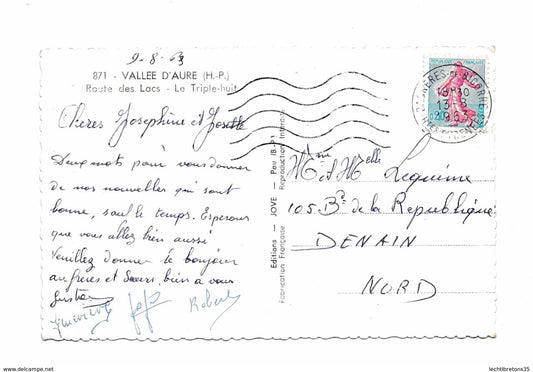 9-8-63
871 - VALLEE D'AURE (H.-P.)
Route des Lacs - Le Triple-huit
Chères Joséphine et Josette
Deux mots pour vous donner
de nos nouvelles qui sont
bonne, sauf le temps. Espérons
que vous allez bien aussi
Veuillez donner le bonjour
au frères et Sœurs. bien a vous
Robert
Editions - JOVE - Pau
Fabrication Française
Reproduction Interdite
BAGNERES-DE-BIGORRE
18H30
13-8
HTES PYRENEES
0,20
Mme et Melle Lequime
105 Bd de la République
DENAIN
NORD
www.delcampe.net
lechtibretons35